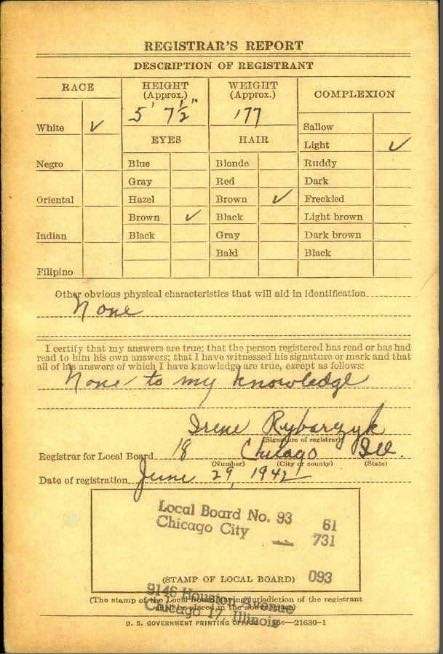 REGISTRAR'S REPORT
DESCRIPTION OF REGISTRANT
RACE HEIGHT (Approx.) WEIGHT (Approx.) COMPLEXION
5' 7½" 177
White ✓ Sallow
EYES HAIR Light ✓
Negro Blue Blonde Ruddy
Gray Red Dark
Oriental Hazel Brown ✓ Freckled
Brown ✓ Black Light brown
Indian Black Gray Dark brown
Bald Black
Filipino
Other obvious physical characteristics that will aid in identification
None
I certify that my answers are true; that the person registered has read or has had
read to him his own answers; that I have witnessed his signature or mark and that
all of his answers of which I have knowledge are true, except as follows:
None to my knowledge
Irene Rybarzyk
(Signature of registrar)
Registrar for Local Board 18 Chicago Ill.
(Number) (City or county) (State)
Date of registration June 29, 1942
Local Board No. 93 61
Chicago City 731
(STAMP OF LOCAL BOARD) 093
9146 Houston Avenue
(The stamp of the Local Board having jurisdiction of the registrant
Chicago 17, Illinois
shall be placed in the above space)
U. S. GOVERNMENT PRINTING OFFICE 16—21630-1